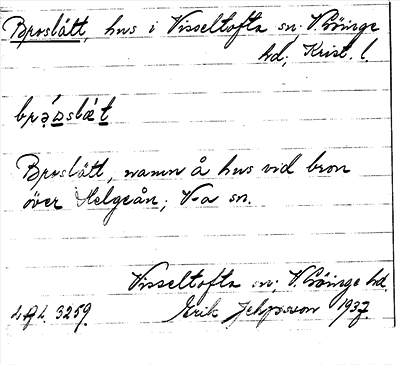 Broslätt, hus i Visseltofta sn; V. Göinge
hd; Krist. l.
Broslätt, namn å hus vid bron
över Helgeån; V-a sn.
Visseltofta sn; V. Göinge hd.
3259. Erik Jeppsson 1937.